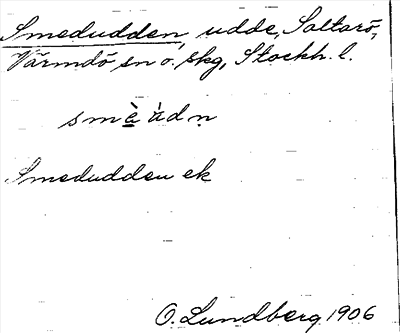 Smedudden, udde, Saltarö,
Värmdö sn o. skg, Stockh. l.
smè̱ ùdn̥
Smedudden ek
O. Lundberg 1906